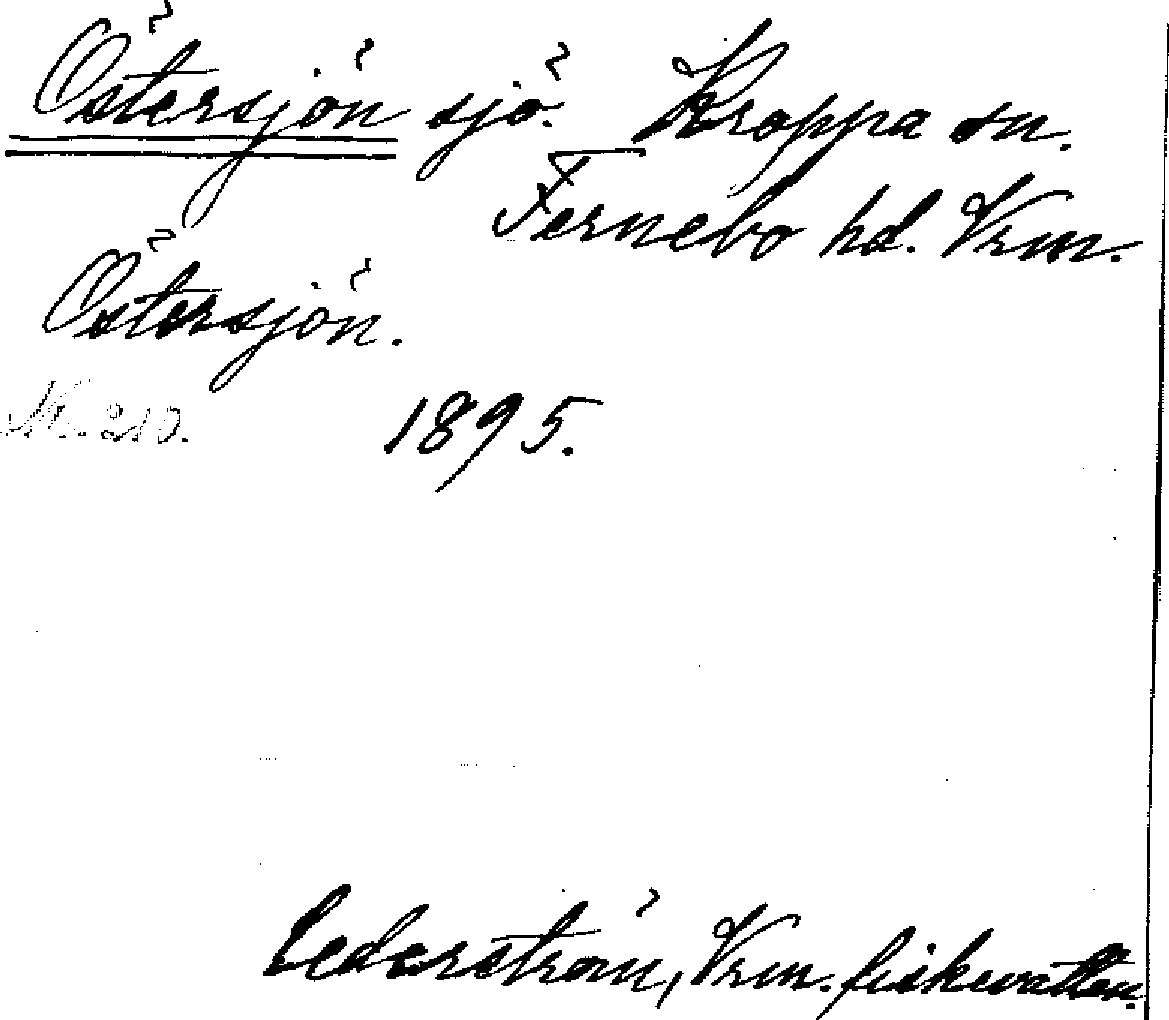 Östersjön sjö. Kroppa sn.
Fernebo hd. Vrm.
Östersjön.
Nr. 210. 1895.
Cederström, Vrm. fiskevatten.